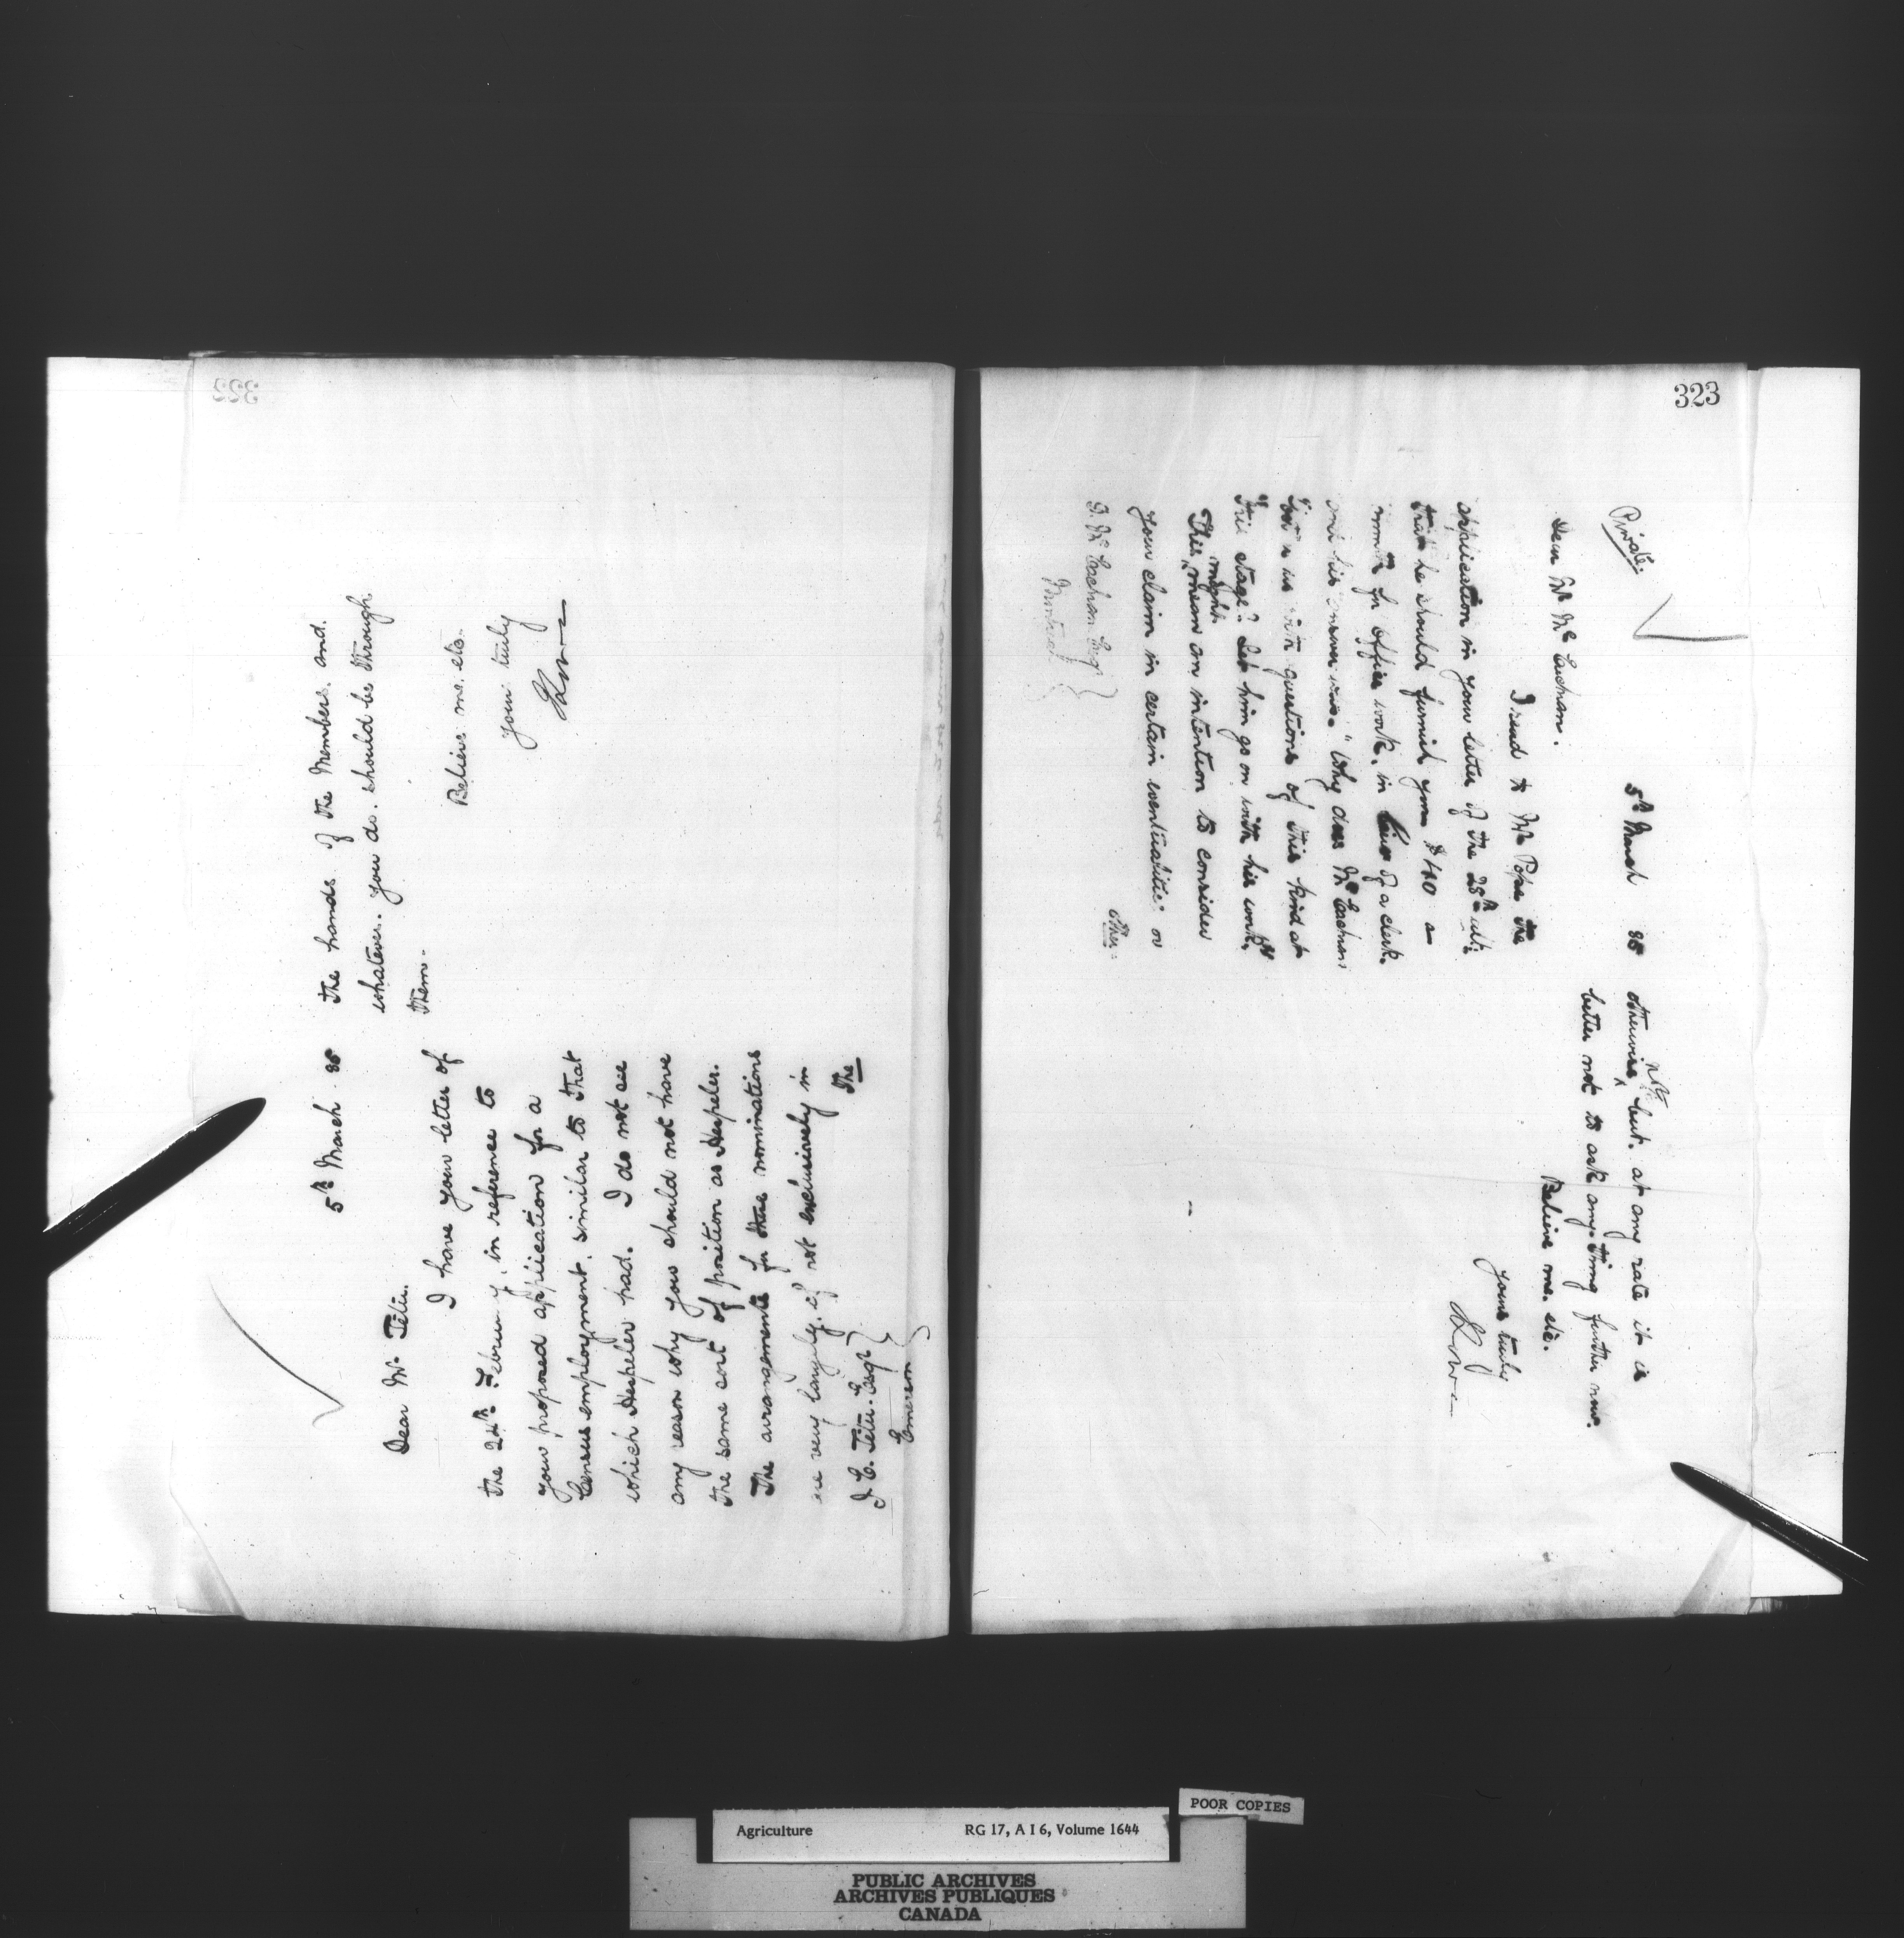 5th March 85
Dear Mr. Tétu.
I have your letter of
the 24th February, in reference to
your proposed application for a
Census employment, similar to that
which Hespeler had. I do not see
any reason why you should not have
the same sort of position as Hespeler.
The arrangements for these nominations
are very largely, if not exclusively in
the
J. E. Tétu. Esqr
Emerson
the hands of the Members. and.
whatever. you do. should be through
them.
Believe me. etc.
Yours truly
J Lowe
323
Private.
5th March 85
Dear Mr McEachran.
I read to Mr Pope the
application in your letter of the 28th ult:
that he should furnish you $40 a
month for office work, in lieu of a clerk.
and his answer was. "Why does McEachran
us with questions of this kind at
this stage? Let him go on with his work."
This might mean an intention to consider
your claim in certain eventualities or
other-
D. McEachran Esqr
Montreal
otherwise, not
but. at any rate it is
better not to ask any-thing further now.
Believe me. etc.
Yours truly
J Lowe
POOR COPIES
Agriculture RG 17, A I 6, Volume 1644
PUBLIC ARCHIVES
ARCHIVES PUBLIQUES
CANADA